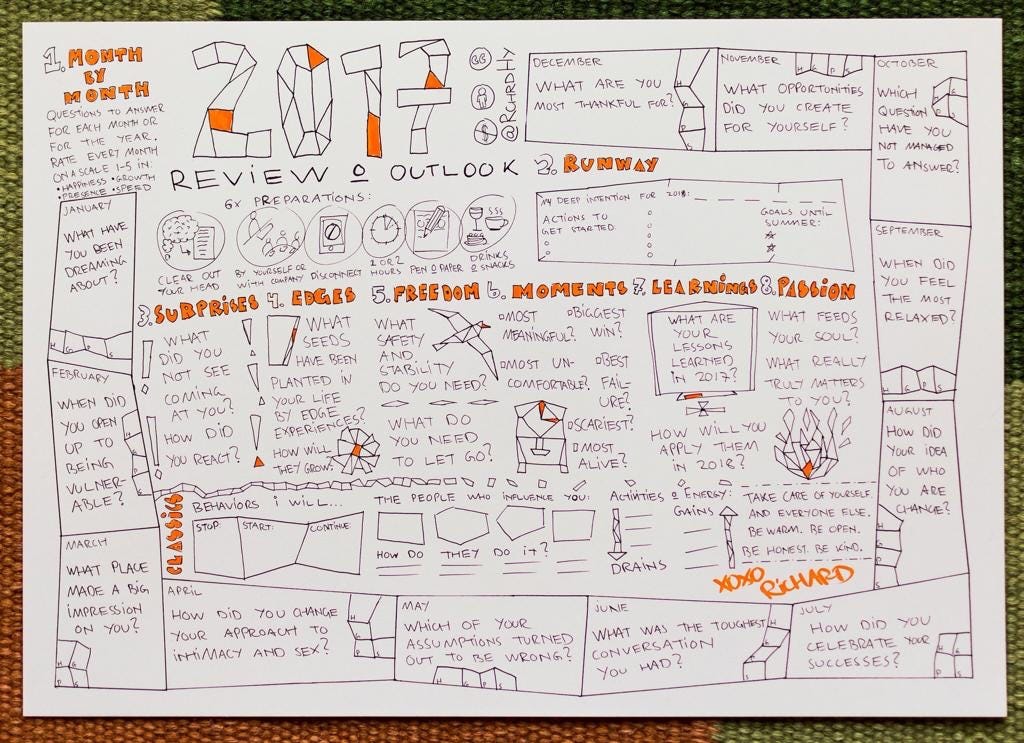 1. MONTH
BY
MONTH
QUESTIONS TO ANSWER
FOR EACH MONTH OR
FOR THE YEAR.
RATE EVERY MONTH
ON A SCALE 1-5 IN:
• HAPPINESS • GROWTH
• PRESENCE • SPEED
2017
REVIEW & OUTLOOK
CC
$
@RCHRDHY
6x PREPARATIONS:
CLEAR OUT
YOUR HEAD
BY YOURSELF OR
WITH COMPANY
DISCONNECT
1 OR 2
HOURS
PEN & PAPER
DRINKS
& SNACKS
JANUARY
WHAT HAVE
YOU BEEN
DREAMING
ABOUT?
H G P S
FEBRUARY
WHEN DID
YOU OPEN
UP TO
BEING
VULNER-
ABLE?
H
G
P
S
MARCH
WHAT PLACE
MADE A BIG
IMPRESSION
ON YOU?
H G
P S
APRIL
HOW DID YOU CHANGE
YOUR APPROACH TO
INTIMACY AND SEX?
H
G
P S
MAY
WHICH OF YOUR
ASSUMPTIONS TURNED
OUT TO BE WRONG?
H G P S
JUNE
WHAT WAS THE TOUGHEST
CONVERSATION
YOU HAD?
H
G
P
S
JULY
HOW DID YOU
CELEBRATE YOUR
SUCCESSES?
H G
P S
AUGUST
HOW DID
YOUR IDEA
OF WHO
YOU ARE
CHANGE?
H
G
P
S
SEPTEMBER
WHEN DID
YOU FEEL
THE MOST
RELAXED?
H G P S
OCTOBER
WHICH
QUESTION
HAVE YOU
NOT MANAGED
TO ANSWER?
H G
P S
NOVEMBER
WHAT OPPORTUNITIES
DID YOU CREATE
FOR YOURSELF?
H G P S
DECEMBER
WHAT ARE YOU
MOST THANKFUL FOR?
H
G
P
S
2. RUNWAY
MY DEEP INTENTION FOR 2018:
ACTIONS TO
GET STARTED:
GOALS UNTIL
SUMMER:
3. SURPRISES
WHAT
DID YOU
NOT SEE
COMING
AT YOU?
HOW DID
YOU REACT?
4. EDGES
WHAT
SEEDS
HAVE BEEN
PLANTED IN
YOUR LIFE
BY EDGE
EXPERIENCES?
HOW WILL
THEY GROW?
5. FREEDOM
WHAT
SAFETY
AND
STABILITY
DO YOU NEED?
WHAT DO
YOU NEED
TO LET GO?
6. MOMENTS
MOST
MEANINGFUL?
BIGGEST
WIN?
MOST UN-
COMFORTABLE?
BEST
FAIL-
URE?
SCARIEST?
MOST
ALIVE?
7. LEARNINGS
WHAT ARE
YOUR
LESSONS
LEARNED
IN 2017?
HOW WILL YOU
APPLY THEM
IN 2018?
8. PASSION
WHAT FEEDS
YOUR SOUL?
WHAT REALLY
TRULY MATTERS
TO YOU?
CLASSICS
BEHAVIORS I WILL...
STOP:
START:
CONTINUE:
THE PEOPLE WHO INFLUENCE YOU:
HOW DO THEY DO IT?
ACTIVITIES & ENERGY:
GAINS
DRAINS
TAKE CARE OF YOURSELF.
AND EVERYONE ELSE.
BE WARM. BE OPEN.
BE HONEST. BE KIND.
XOXO
RICHARD